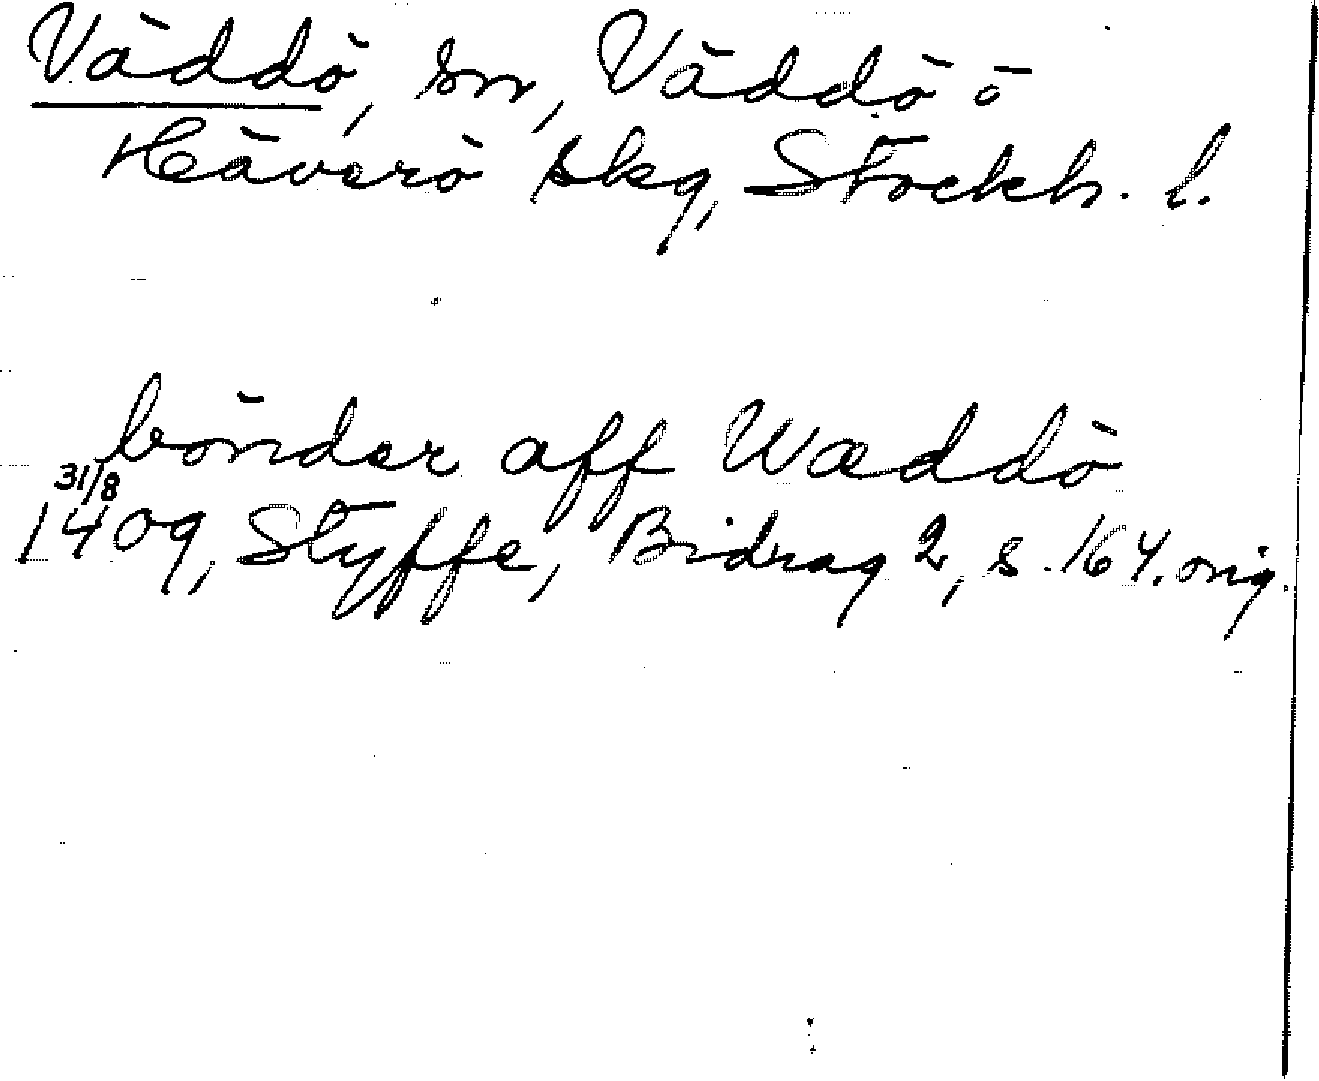 Väddö, sn, Väddö o
Häverö skg, Stockh. l.
bönder aff Wæddö
31/8
1409, Styffe, Bidrag 2, s. 164. orig.